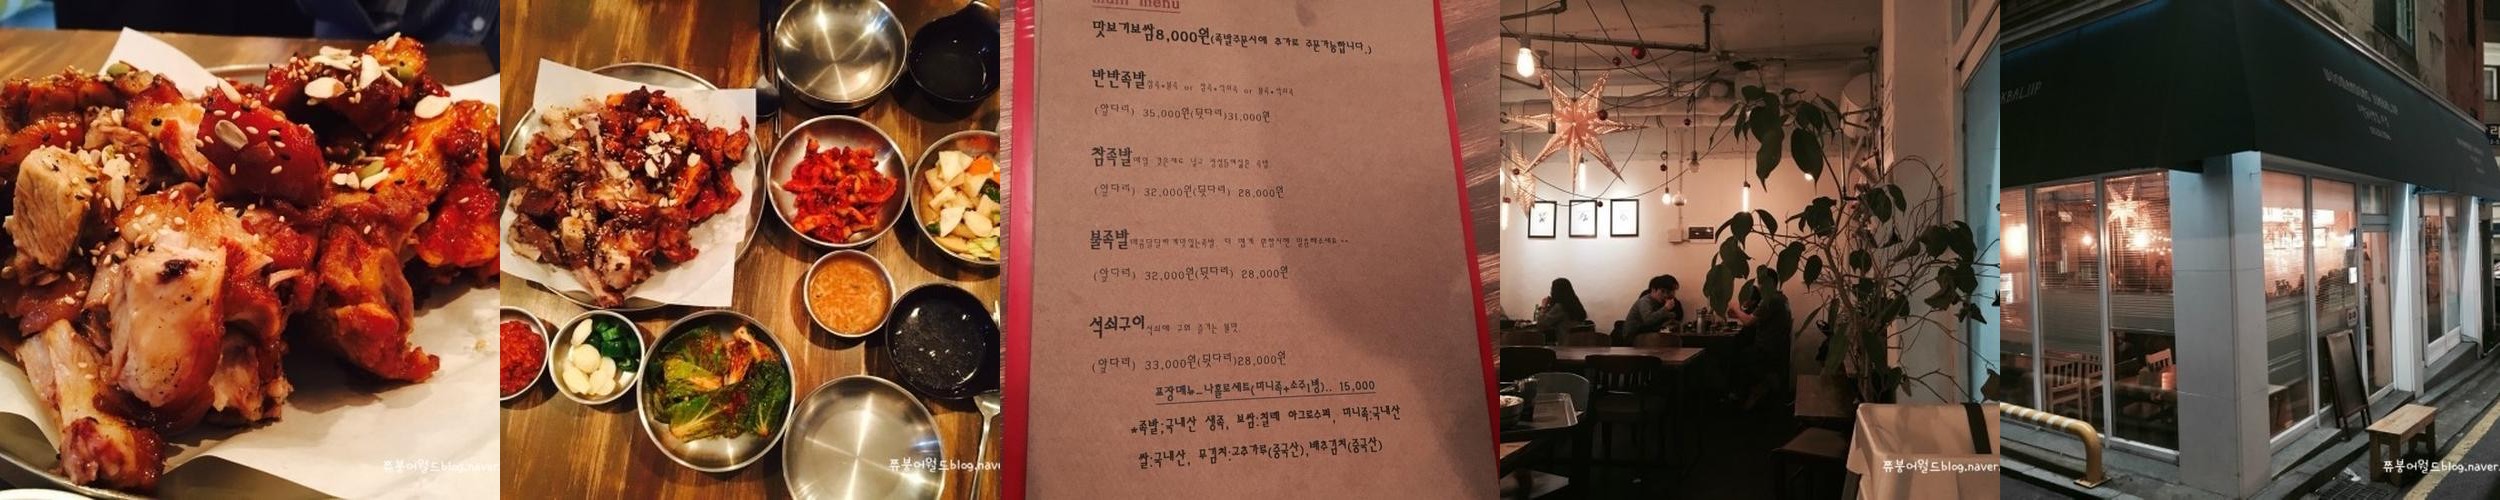 쮸붕어월드blog.naver
쮸붕어월드blog.nave
main menu
맛보기보쌈8,000원(족발주문시에 추가로 주문가능합니다.)
반반족발 참족+불족 or 참족+석쇠족 or 불족+석쇠족
(앞다리) 35,000원(뒷다리)31,000원
참족발
(앞다리) 32,000원(뒷다리) 28,000원
불족발
(앞다리) 32,000원(뒷다리) 28,000원
석쇠구이 석쇠에 구워 즐기는 불맛
(앞다리) 33,000원(뒷다리)28,000원
포장메뉴_나홀로세트(미니족+소주1병).. 15,000
*족발:국내산 생족, 보쌈:칠레 아그로수퍼, 미니족:국내산
쌀:국내산, 무김치:고추가루(중국산),배추김치(중국산)
쮸붕어월드blog.naver.
쮸붕어월드blog.naver.